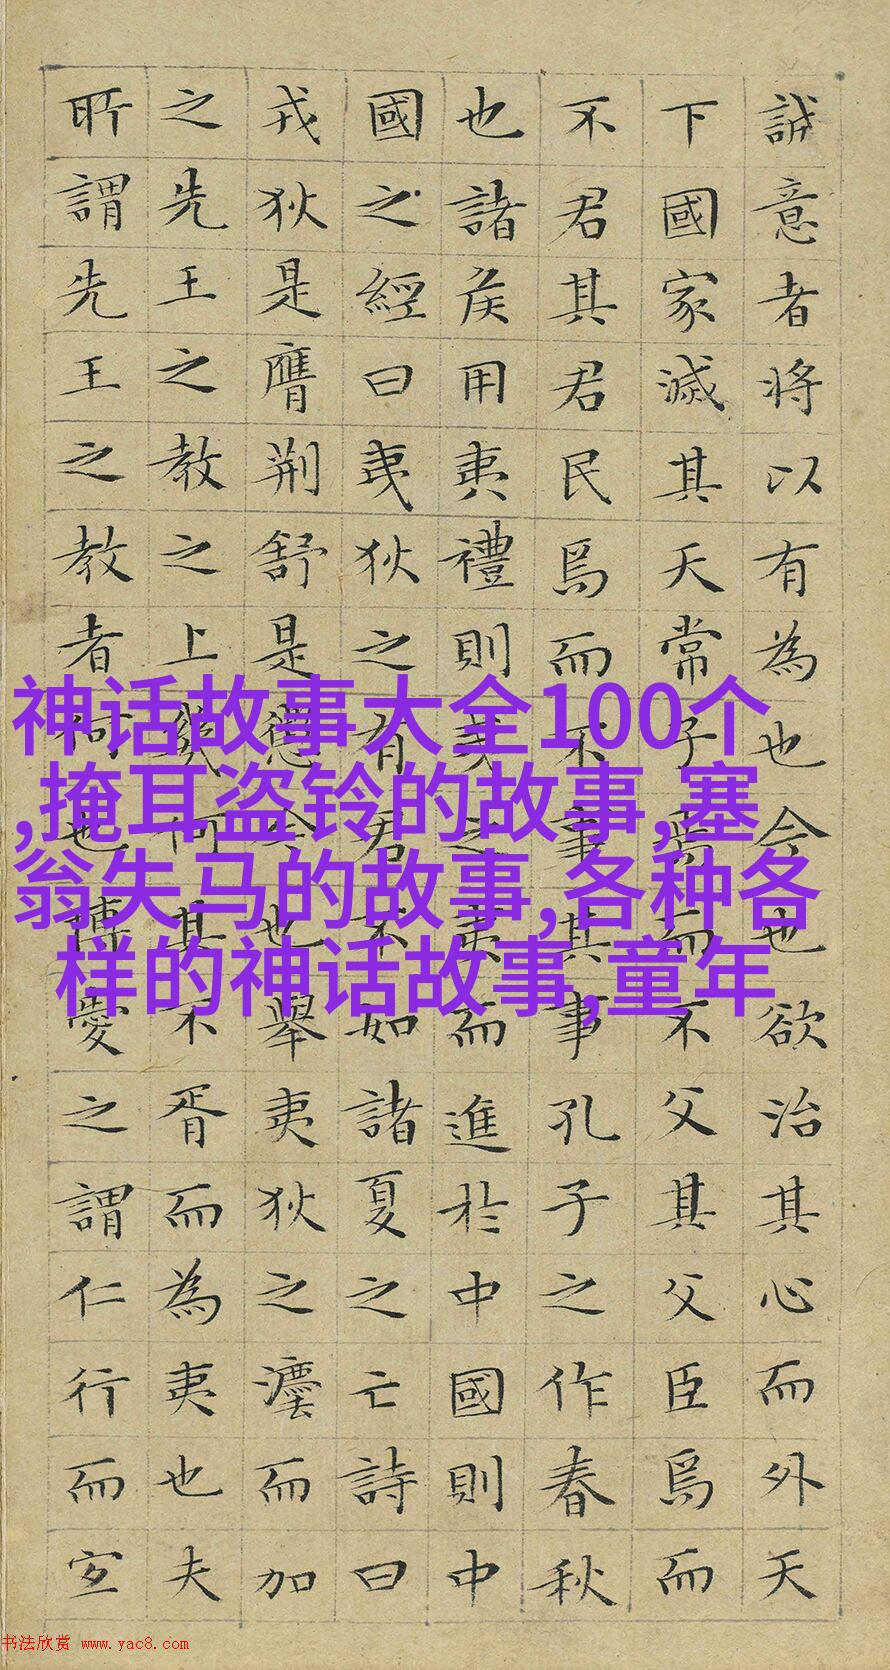 誠意者将以有為也今也欲治其心而外天
下國家滅其天常子焉而不父其父臣焉而
不君其君民焉而不事其事孔子之作春秋
也諸侯用夷禮則夷之夷而進於中國則中
國之經曰夷狄之有君不如諸夏之亡詩曰
戎狄是膺荆舒是懲今也舉夷狄之灋而加
之先王之教之上幾何其不胥而為夷也夫
所謂先王之教者何也博愛之謂仁行而宜
神话故事大全100个
,掩耳盗铃的故事,塞
翁失马的故事,各种各
样的神话故事,童年
书法欣赏 www.yac8.com